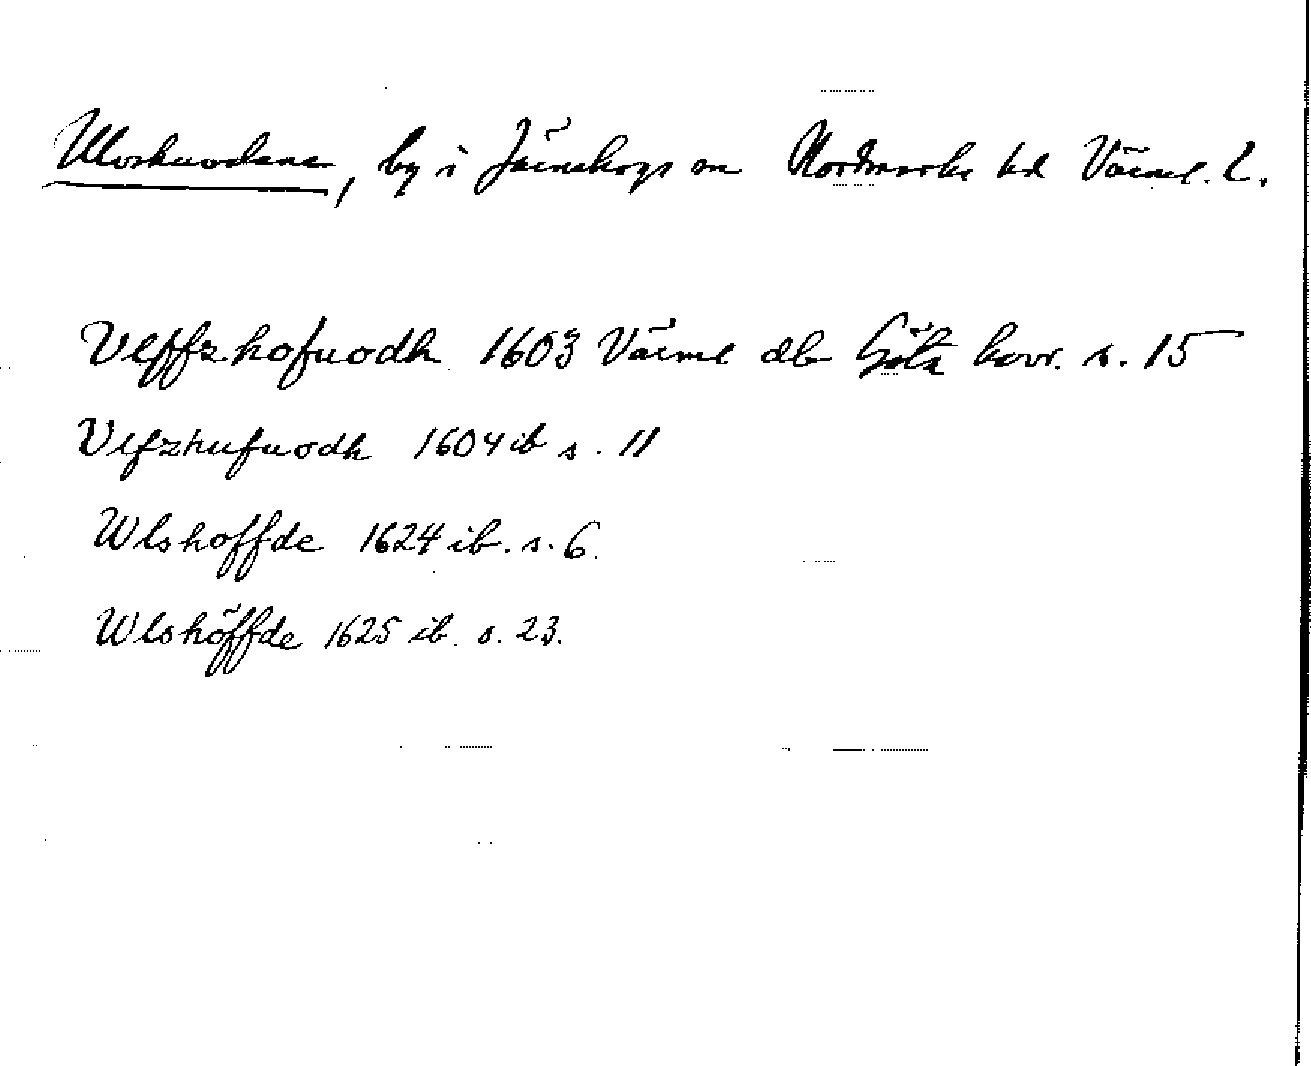 Ulvskuodene, by i Järnskogs sn Nordmarks hd Värml. l.
Vlffzhofuodh 1603 Värml db Göta hovr. s. 15
Vlfzhufuodh 1604 ib s. 11
Wlshoffde 1624 ib. s. 6.
Wlshöffde 1625 ib. s. 23.